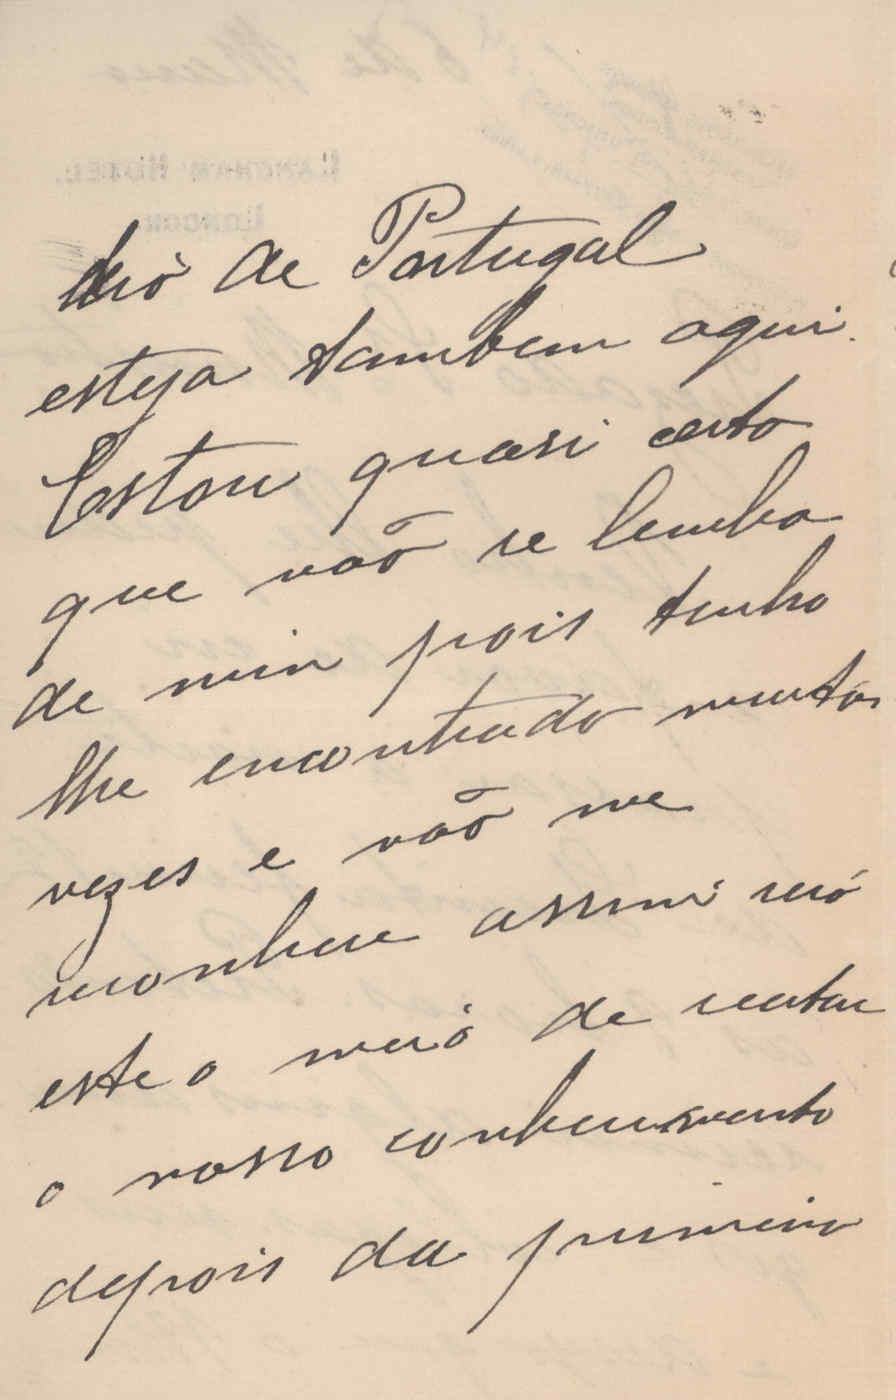 de Portugal
esteja tambem aqui.
Estou quasi certo
que não se lembra
de mim pois tenho
lhe encontrado muitas
vezes e não me
reconhece assim será
este o meio de reatar
o nosso conhecimento
depois da primeira